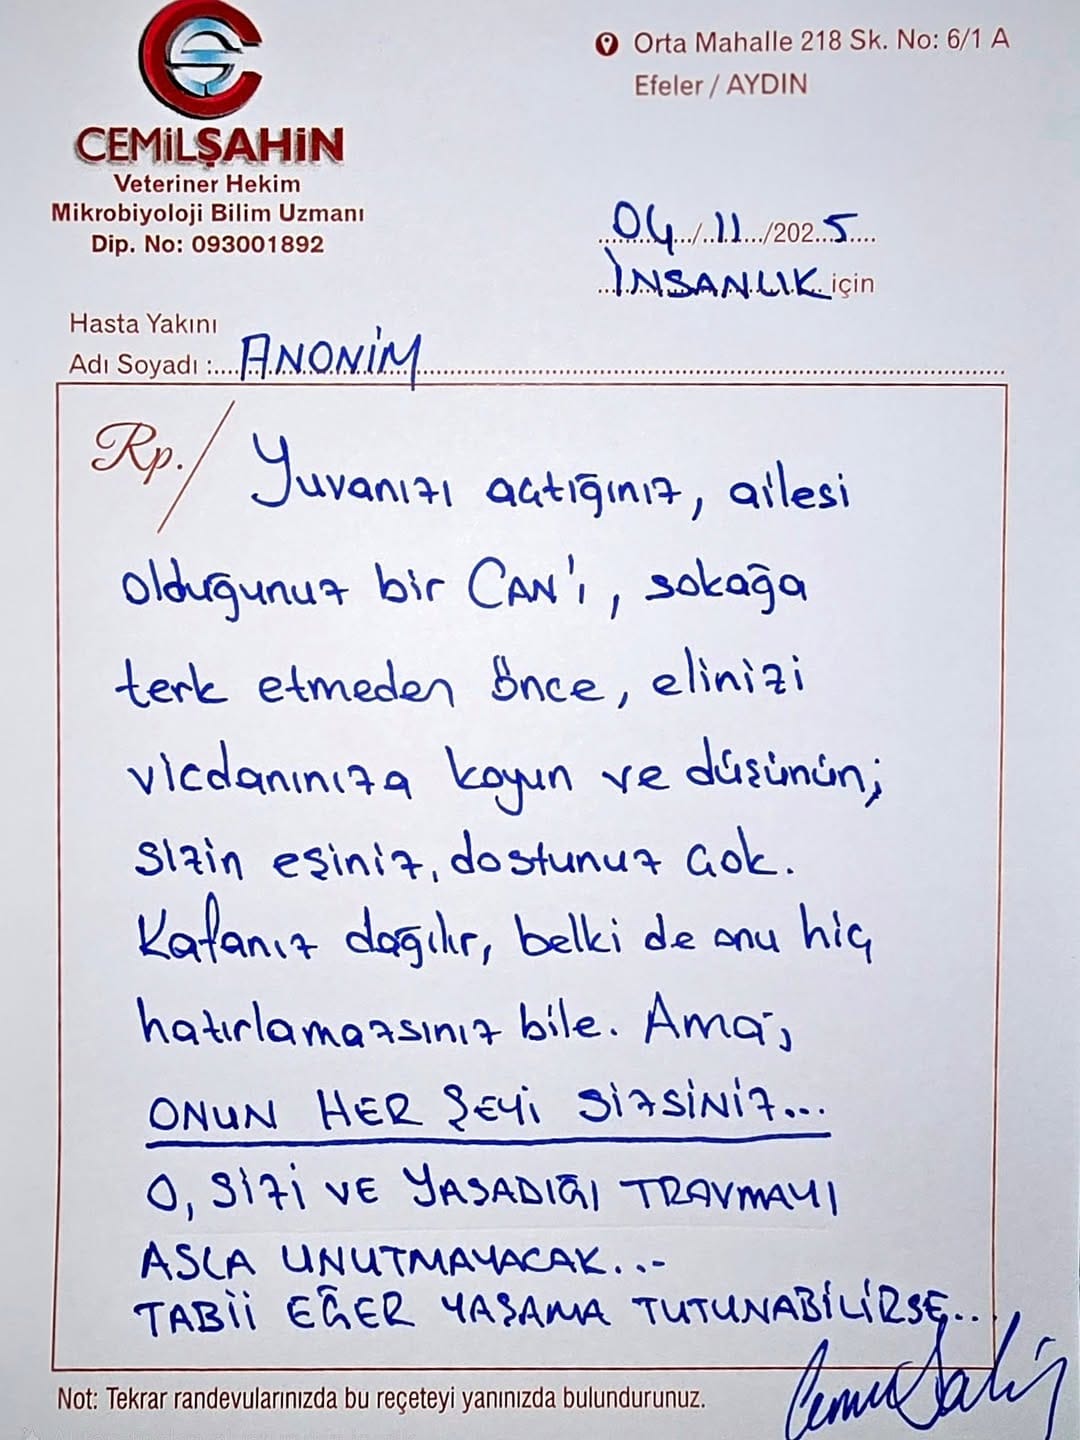 CEMİLŞAHİN
Veteriner Hekim
Mikrobiyoloji Bilim Uzmanı
Dip. No: 093001892
Orta Mahalle 218 Sk. No: 6/1 A
Efeler / AYDIN
04/11/2025
İNSANLIK için
Hasta Yakını
Adı Soyadı : ANONİM
Rp./ Yuvanızı açtığınız, ailesi
olduğunuz bir CAN'ı, sokağa
terk etmeden önce, elinizi
vicdanınıza koyun ve düşünün;
Sizin eşiniz, dostunuz çok.
Kafanız dağılır, belki de onu hiç
hatırlamazsınız bile. Ama;
ONUN HER ŞEYİ SİZSİNİZ...
O, SİZİ VE YAŞADIĞI TRAVMAYI
ASLA UNUTMAYACAK...
TABİİ EĞER YAŞAMA TUTUNABİLİRSE..
Cemil Şahin
Not: Tekrar randevularınızda bu reçeteyi yanınızda bulundurunuz.